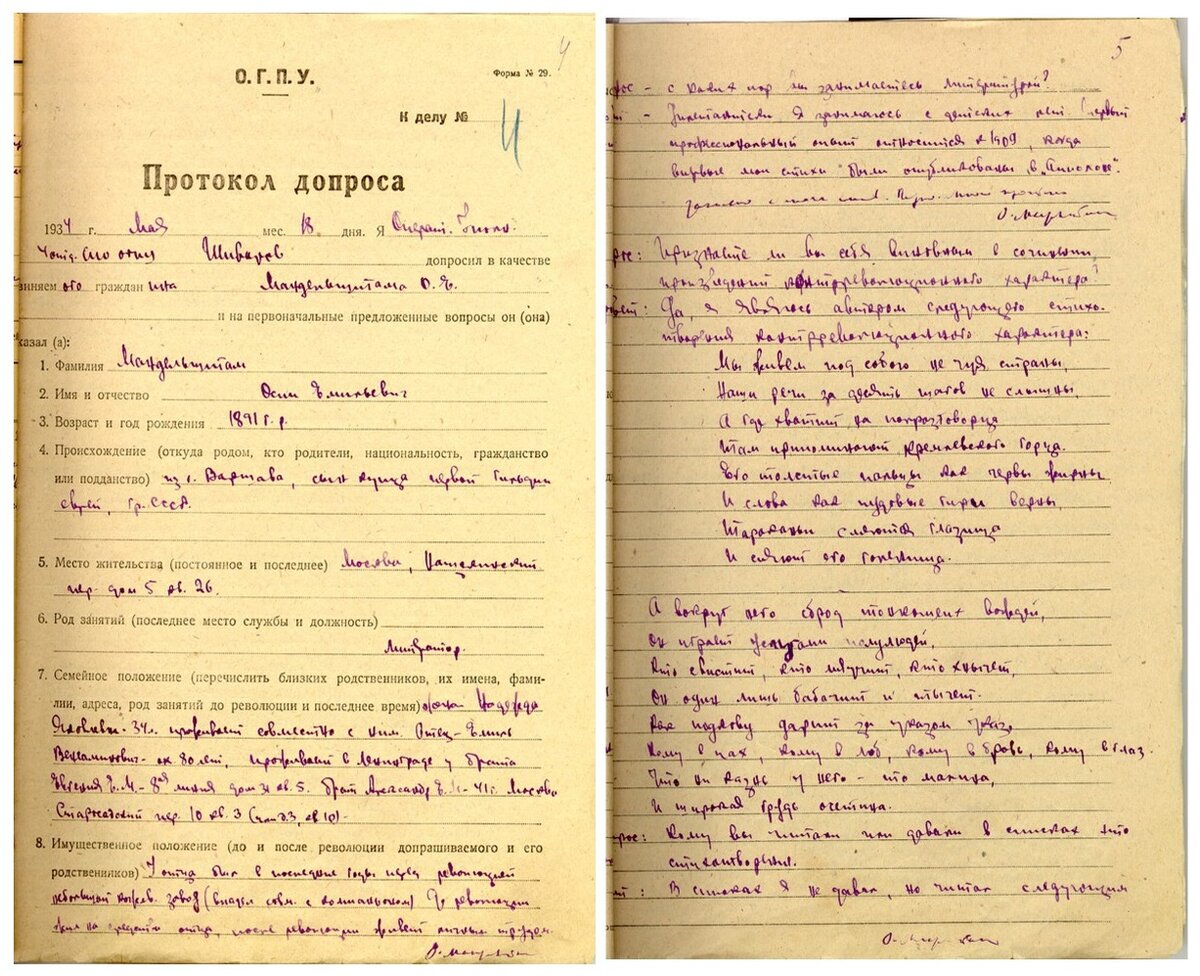 4
О.Г.П.У.
Форма № 29.
К делу № 4
Протокол допроса
1934 г. Мая мес. 18 дня. Я
Шиваров допросил в качестве
граждан Мандельштама О. Э.
и на первоначальные предложенные вопросы он (она)
казал (а):
1. Фамилия Мандельштам
2. Имя и отчество Осип Эмильевич
3. Возраст и год рождения 1891 г. р.
4. Происхождение (откуда родом, кто родители, национальность, гражданство
или подданство) из г. Варшава, сын купца первой гильдии
еврей, гр. СССР.
5. Место жительства (постоянное и последнее) Москва, Нащекинский
пер. дом 5 кв. 26.
6. Род занятий (последнее место службы и должность)
литератор.
7. Семейное положение (перечислить близких родственников, их имена, фами-
лии, адреса, род занятий до революции и последнее время) жена Надежда
Яковлевна - 34 л. проживает совместно с ним. Отец - Эмиль
Вениаминович - ок. 80 лет, проживает в Ленинграде у брата
Евгения Э. М. - 8ая линия дом 31 кв. 5. брат Александр Э. М. - 41 г. Москва
Старосадский пер. 10 кв. 3
8. Имущественное положение (до и после революции допрашиваемого и его
родственников) У отца был в последние годы перед революцией
небольшой кожев. завод (владел совм. с компаньоном) До революции
жил на средства отца, после революции живет личным трудом.
О. Мандельштам
5
рос - с каких пор вы занимаетесь литературой?
- я занимаюсь с детских лет первый
профессиональный опыт относится к 1909, когда
впервые мои стихи были опубликованы в „Аполлоне“.
О. Мандельштам
рос: Признаете ли вы себя виновным в сочинении
произведений контрреволюционного характера?
вет: Да, я являюсь автором следующего стихо-
творения контрреволюционного характера:
Мы живем под собою не чуя страны,
Наши речи за десять шагов не слышны,
А где хватит на полразговорца
Там припоминают кремлевского горца.
Его толстые пальцы как черви жирны
И слова как пудовые гири верны,
Тараканьи смеются глазища
И сияют его голенища.
А вокруг него сброд тонкошеих вождей,
Он играет услугами полулюдей,
Кто свистит, кто мяучит, кто хнычет,
Он один лишь бабачит и тычет.
Как подкову дарит за указом указ,
Кому в пах, кому в лоб, кому в бровь, кому в глаз.
Что ни казнь у него - то малина,
И широкая грудь осетина.
рос: Кому вы читали или давали в списках это
стихотворение.
ет: В списках я не давал, но читал следующим
О. Мандельштам